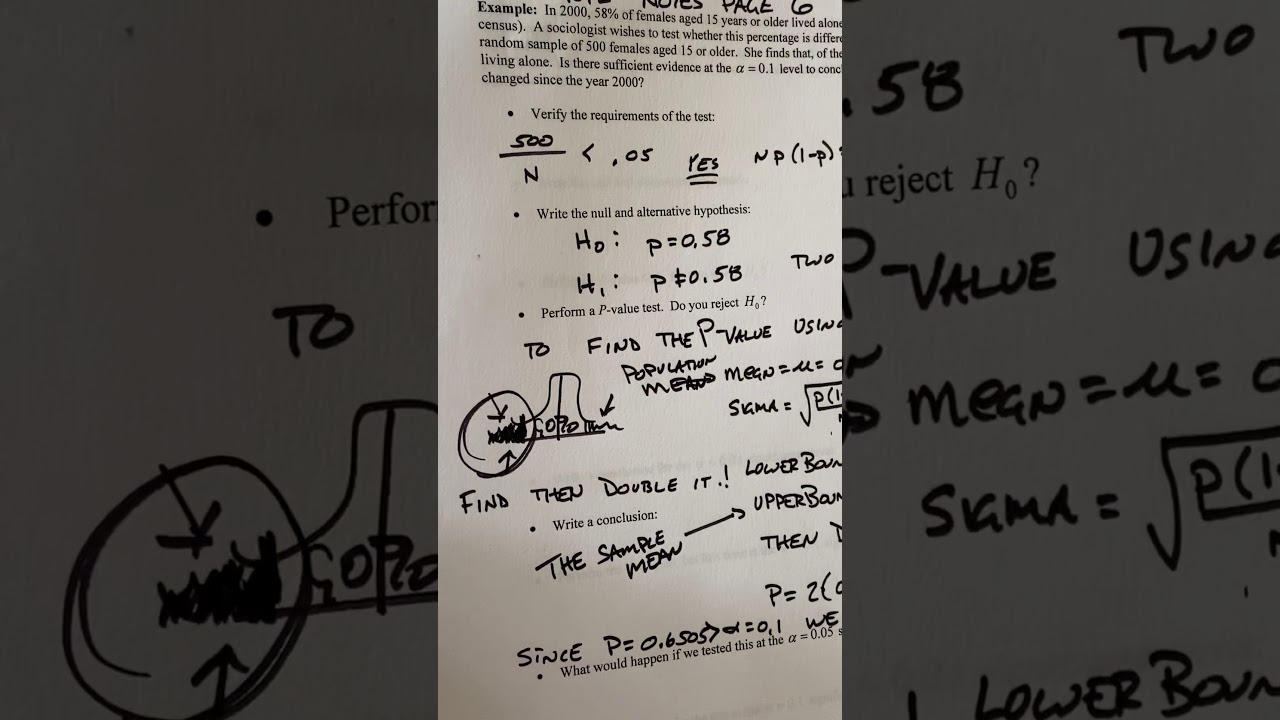 NOTES PAGE 6
Example: In 2000, 58% of females aged 15 years or older lived alone
census). A sociologist wishes to test whether this percentage is differe
random sample of 500 females aged 15 or older. She finds that, of the
living alone. Is there sufficient evidence at the α = 0.1 level to conc
changed since the year 2000?
• Verify the requirements of the test:
500/N < .05 YES NP(1-p)
• Write the null and alternative hypothesis:
H0: p=0.58
H1: p≠0.58 TWO
• Perform a P-value test. Do you reject H0?
TO FIND THE P-VALUE USING
POPULATION
MEAN MEAN = μ = 0
SIGMA = √p(1
.60
FIND THEN DOUBLE IT.! LOWER BOUN
UPPER BOUN
• Write a conclusion:
THE SAMPLE
MEAN
THEN
P= 2(0
SINCE P=0.6505>α=0.1 WE
• What would happen if we tested this at the α = 0.05 s
Perfor
TO
TWO
.58
u reject H0?
P-VALUE USING
MEAN = μ = 0
SIGMA = √p(1-
LOWER BOUN